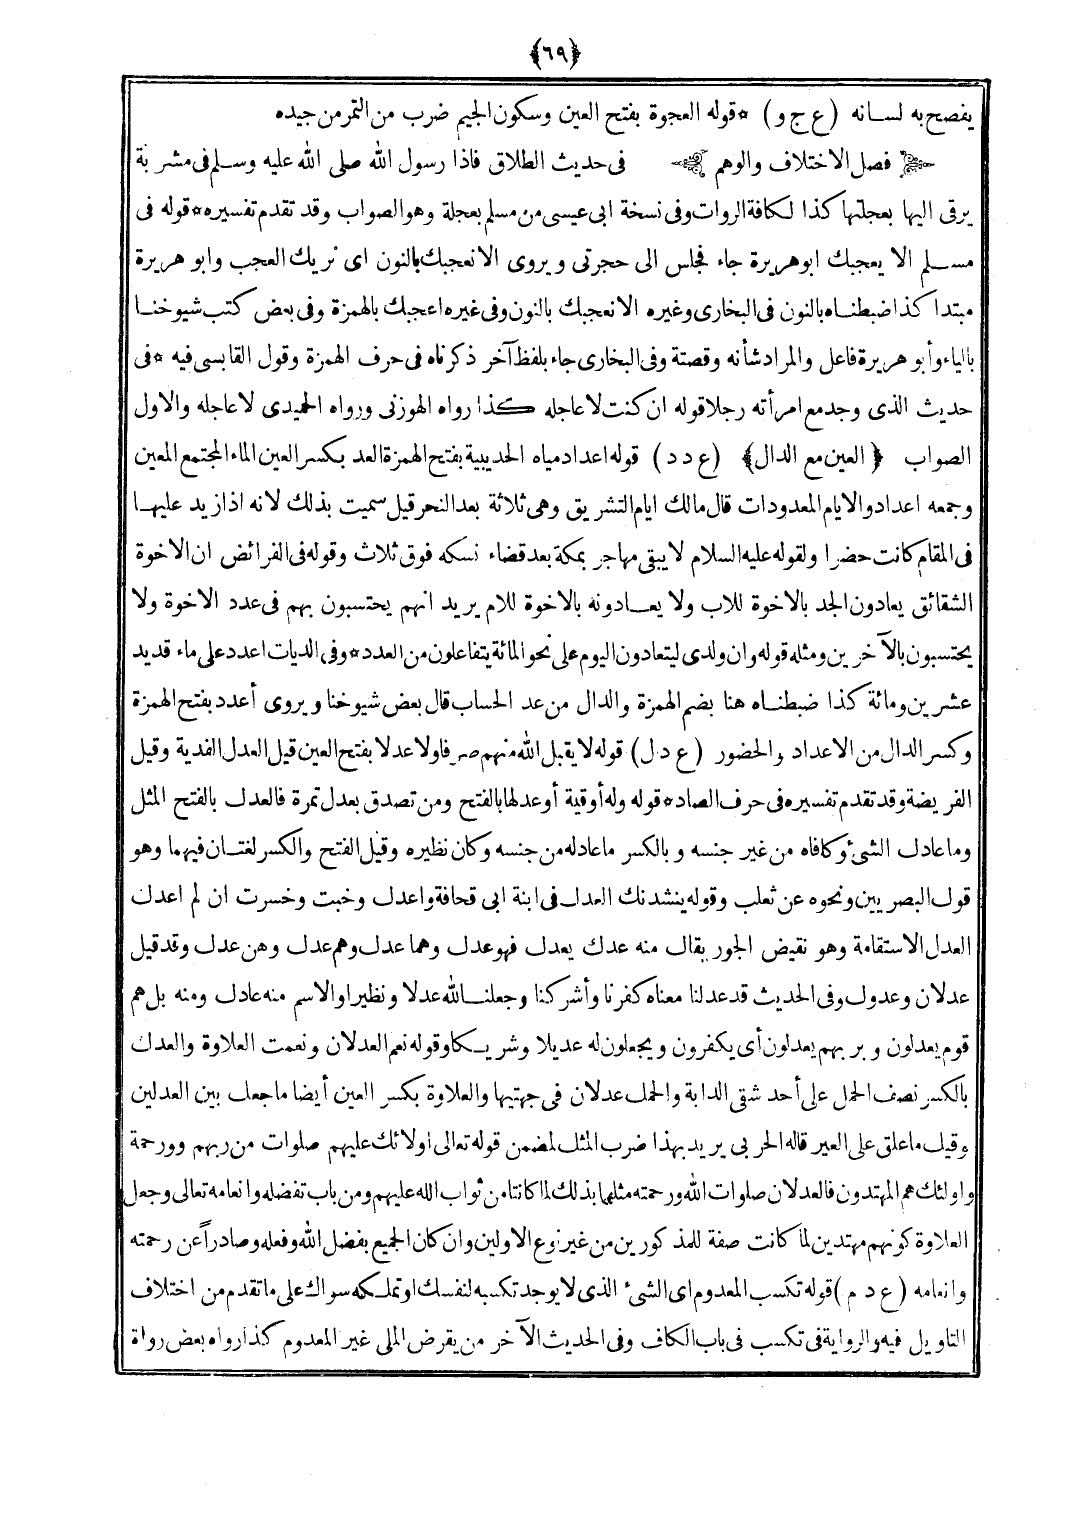 ﴿٦٩﴾
يفصح به لسانه (ع ج و) *قوله العجوة بفتح العين وسكون الجيم ضرب من التمر من جيده
فصل الاختلاف والوهم في حديث الطلاق فاذا رسول الله صلى الله عليه وسلم فى مشربة
يرقى اليها بعجلتها كذا لكافة الروات وفى نسخة ابى عيسى من مسلم بعجلة وهو الصواب وقد تقدم تفسيره*قوله فى
مسلم الا يعجبك ابو هريرة جاء فجلس الى حجرتى ويروى الا نعجبك بالنون اى نريك العجب وابو هريرة
مبتدا كذا ضبطناه بالنون فى البخارى وغيره الا نعجبك بالنون وفى غيره اعجبك بالهمزة وفى بعض كتب شيوخنا
بالياء وأبو هريرة فاعل والمراد شأنه وقصتة وفى البخارى جاء بلفظ آخر ذكرناه فى حرف الهمزة وقول القابسى فيه *فى
حديث الذى وجد مع امرأته رجلا قوله ان كنت لاعاجله كذا رواه الهوزنى ورواه الحميدى لاعاجله والاول
الصواب ﴿العين مع الدال﴾ (ع د د) قوله اعداد مياه الحديبية بفتح الهمزة العد بكسر العين الماء المجتمع المعين
وجمعه اعداد والايام المعدودات قال مالك ايام التشريق وهى ثلاثة بعد النحر قيل سميت بذلك لانه اذا زيد عليها
فى المقام كانت حضرا ولقوله عليه السلام لا يبقى مهاجر بمكة بعد قضاء نسكه فوق ثلاث وقوله فى الفرائض ان الاخوة
الشقائق يعادون الجد بالاخوة للاب ولا يعادونه بالاخوة للام يريد انهم يحتسبون بهم فى عدد الاخوة ولا
يحتسبون بالآخرين ومثله قوله وان ولدى ليتعادون اليوم على نحو المائة يتفاعلون من العدد*وفى الديات اعدد على ماء قديد
عشرين ومائة كذا ضبطناه هنا بضم الهمزة والدال من عد الحساب قال بعض شيوخنا ويروى أعدد بفتح الهمزة
وكسر الدال من الاعداد والحضور (ع د ل) قوله لا يقبل الله منهم صرفا ولا عدلا بفتح العين قيل العدل الفدية وقيل
الفريضة وقد تقدم تفسيره فى حرف الصاد*قوله وله أوقية أو عدلها بالفتح ومن تصدق بعدل تمرة فالعدل بالفتح المثل
وما عادل الشئ وكافاه من غير جنسه وبالكسر ما عادله من جنسه وكان نظيره وقيل الفتح والكسر لغتان فيهما وهو
قول البصريين ونحوه عن ثعلب وقوله ينشدنك العدل فى ابنة ابى قحافة واعدل وخبت وخسرت ان لم اعدل
العدل الاستقامة وهو نقيض الجور يقال منه عدل يعدل فهو عدل وهما عدل وهم عدل وهن عدل وقد قيل
عدلان وعدول وفى الحديث قد عدلنا معناه كفرنا وأشركنا وجعلنا لله عدلا ونظيرا والاسم منه عادل ومنه بل هم
قوم يعدلون وبربهم يعدلون أى يكفرون ويجعلون له عديلا وشريكا وقوله نعم العدلان ونعمت العلاوة والعدل
بالكسر نصف الحمل على أحد شقى الدابة والحمل عدلان فى جهتيها والعلاوة بكسر العين أيضا ما جعل بين العدلين
وقيل ما علق على العير قاله الحربى يريد بهذا ضرب المثل لمضمن قوله تعالى اولائك عليهم صلوات من ربهم وورحمة
واولئك هم المهتدون فالعدلان صلوات الله ورحمته مثلهما بذلك لما كانتا من ثواب الله عليهم ومن باب تفضله وانعامه تعالى وجعل
العلاوة كونهم مهتدين لما كانت صفة للمذكورين من غير نوع الاولين وان كان الجميع بفضل الله وفعله وصادراً عن رحمته
وانعامه (ع د م) قوله تكسب المعدوم اى الشئ الذى لا يوجد تكسبه لنفسك او تملكه سواك على ما تقدم من اختلاف
التاويل فيه والرواية فى تكسب فى باب الكاف وفى الحديث الآخر من يقرض الملى غير المعدوم كذا رواه بعض رواة